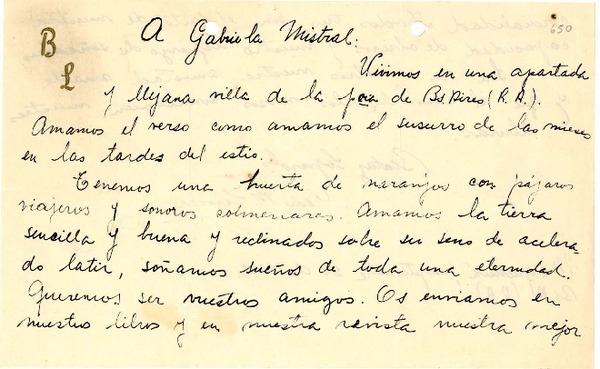 650
B L
A Gabriela Mistral:
Vivimos en una apartada
y llejana villa de la pcia de Bs. Aires (R. A.).
Amamos el verso como amamos el susurro de las mieses
en las tardes del estio.
Tenemos una huerta de naranjos con pájaros
viajeros y sonoros colmenares. Amamos la tierra
sencilla y buena y reclinados sobre su seno de acelera-
do latir, soñamos sueños de toda una eternidad.
Queremos ser vuestros amigos. Os enviamos en
nuestros libros y en nuestra revista nuestra mejor